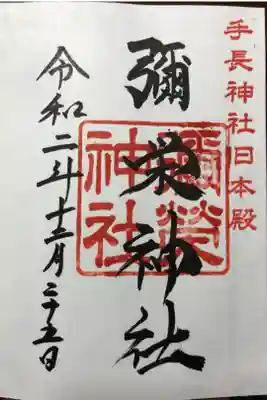 手長神社日本殿
彌栄神社
彌榮
神社
令和二年十二月二十五日